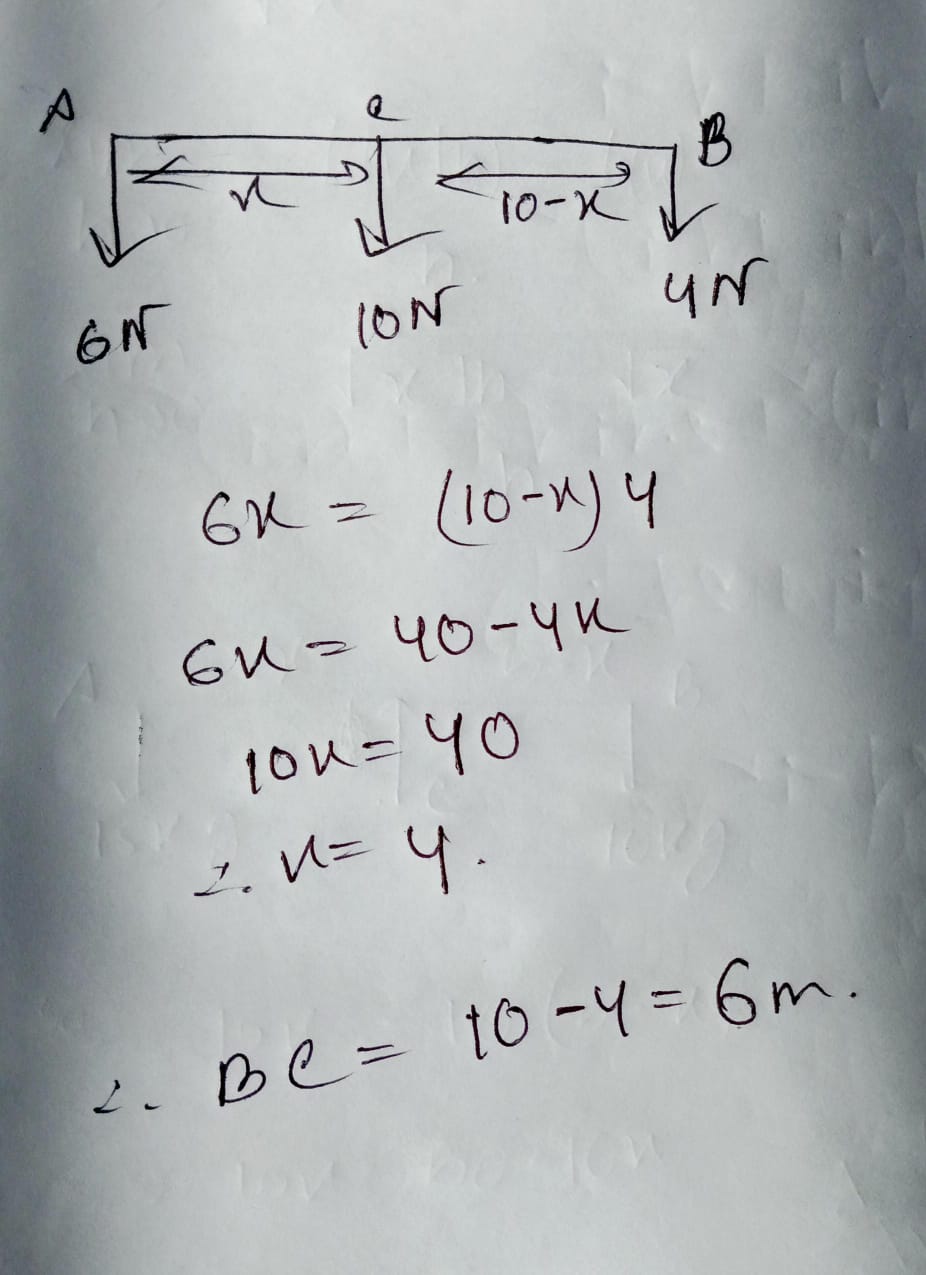 A C B
x 10-x
6N 10N 4N
6x = (10-x) 4
6x = 40-4x
10x = 40
∴ x = 4.
∴ BC = 10-4 = 6m.